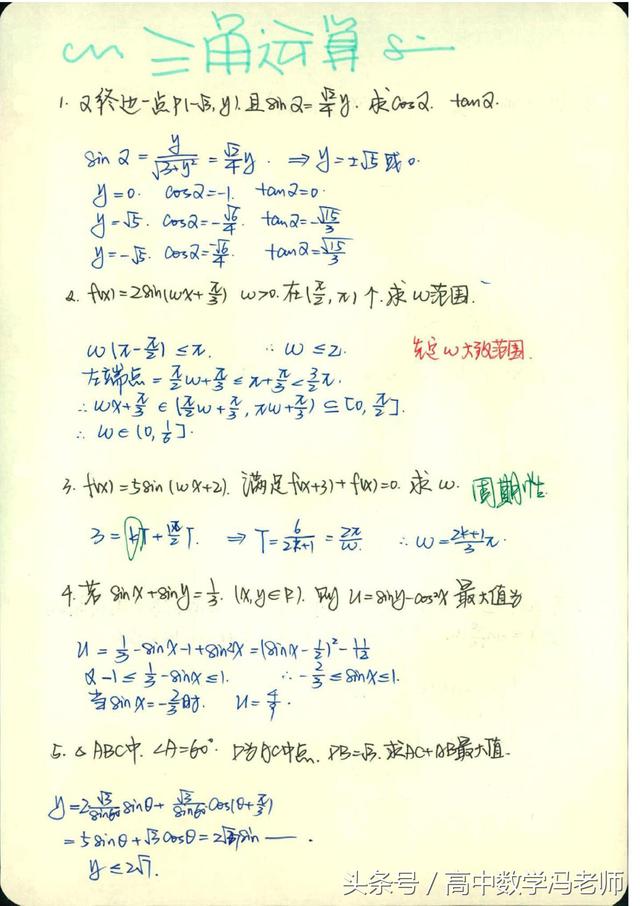 cos 三角运算 sin
1. α终边一点P(-√3, y). 且sinα = √2/4 y. 求cosα. tanα.
sinα = y/√(3+y²) = √2/4 y. ⇒ y = ±√5 或 0.
y = 0. cosα = -1. tanα = 0.
y = √5. cosα = -√6/4. tanα = -√15/3
y = -√5. cosα = -√6/4. tanα = √15/3
2. f(x) = 2sin(ωx + π/3) ω>0. 在(π/2, π)个. 求ω范围.
ω(π - π/2) ≤ π. ∴ ω ≤ 2. 先定ω大致范围.
左端点 = π/2 ω + π/3 ≤ π + π/3 < 3/2 π.
∴ ωx + π/3 ∈ (π/2 ω + π/3, πω + π/3) ⊆ [0, π/2].
∴ ω ∈ (0, 1/6].
3. f(x) = 5sin(ωx+2). 满足f(x+3) + f(x) = 0. 求ω. 周期性
3 = kT + T. ⇒ T = 6/(2k+1) = 2π/ω. ∴ ω = (2k+1)/3 π.
4. 若 sinx + siny = 1/3. (x, y∈R). 则 u = siny - cos²x 最大值为
u = 1/3 - sinx - 1 + sin²x = (sinx - 1/2)² - 11/12
又 -1 ≤ 1/3 - sinx ≤ 1. ∴ -2/3 ≤ sinx ≤ 1.
当sinx = -2/3时. u = 4/9.
5. △ABC中. ∠A = 60°. D为AC中点. DB = √3. 求AC+AB最大值.
y = 2 √3/sin60 sinθ + √3/sin60 cos(θ + π/3)
= 5sinθ + √3cosθ = 2√7sin — .
y ≤ 2√7.
头条号 / 高中数学冯老师